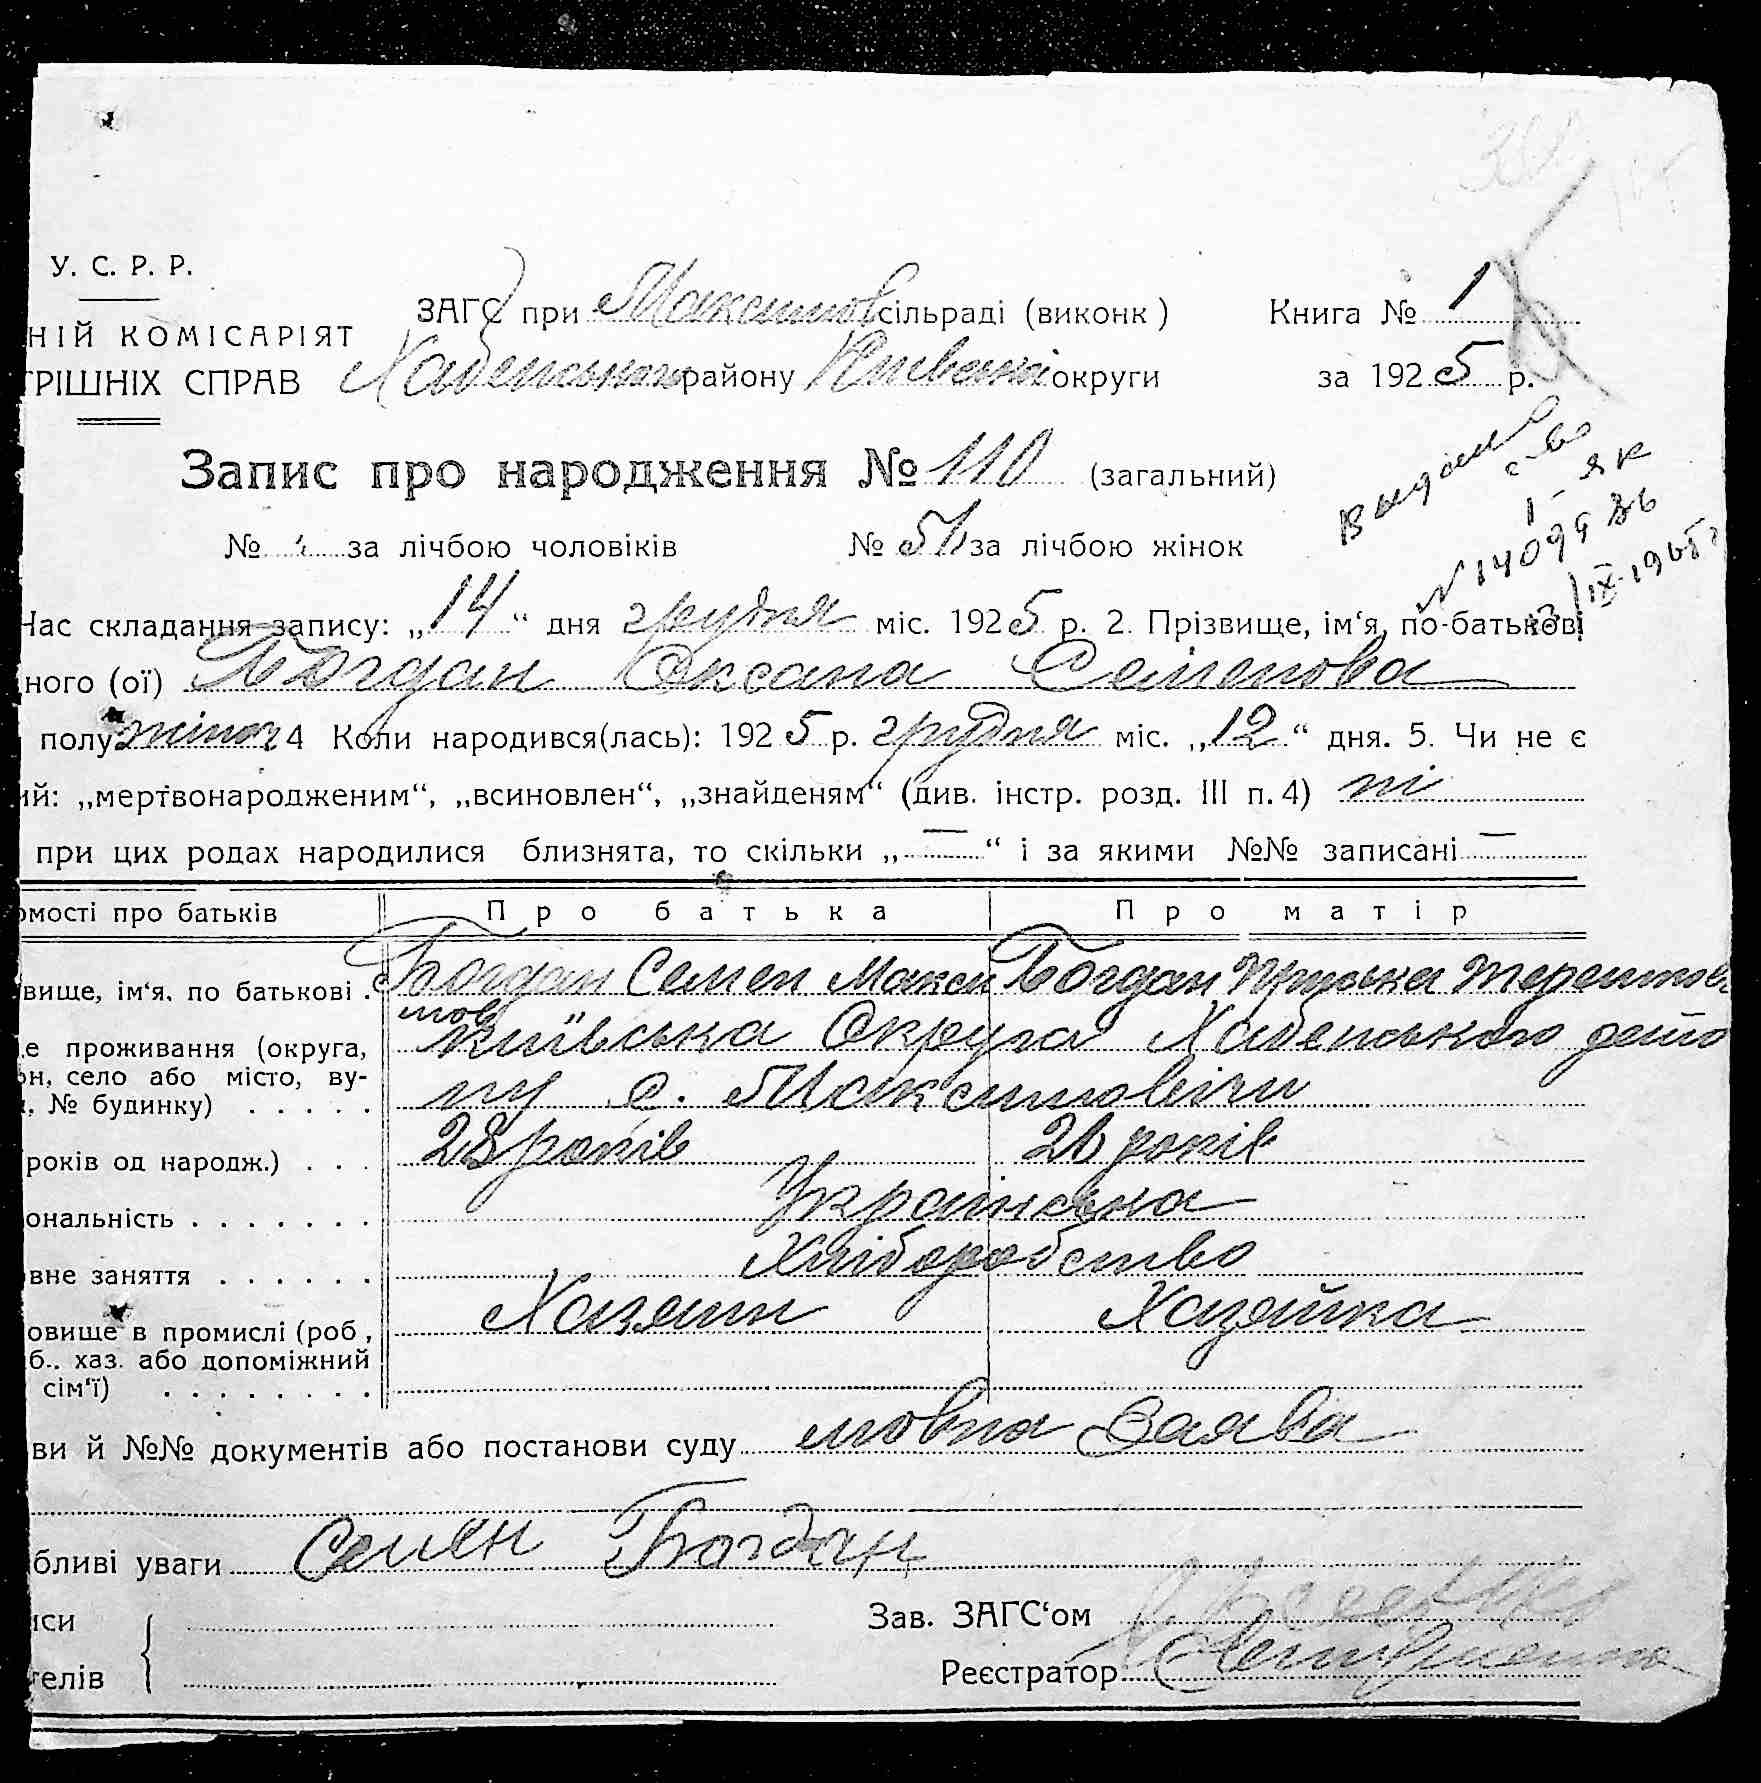 У. С. Р. Р.
ЗАГС при Максимов сільраді (виконк) Книга № 1
НІЙ КОМІСАРІЯТ
РІШНІХ СПРАВ Хабенського району Київської округи за 1925 р.
Запис про народження № 110 (загальний)
№ за лічбою чоловіків № 51 за лічбою жінок
Выдано
с-во
I-ЯК
N 1409936
/IX-1965 г
Час складання запису: „14“ дня грудня міс. 1925 р. 2. Прізвище, ім‘я, по-батькові
ного (ої) Богдан Оксана Семенова
полу жіноч 4 Коли народився(лась): 1925 р. грудня міс. „12“ дня. 5. Чи не є
ий: „мертвонародженим“, „всиновлен“, „знайденям“ (див. інстр. розд. III п. 4) ні
при цих родах народилися близнята, то скільки „—“ і за якими №№ записані —
омості про батьків Про батька Про матір
вище, ім‘я, по батькові . Богдан Семен Макси Богдан Терентов
мов
е проживання (округа, Київська Округа Хабенського
он, село або місто, ву-
, № будинку) . . . . . ну с. Максимовічи
років од народж.) . . . 28 років 26 років
ональність . . . . . . . Українська
вне заняття . . . . . . Хліборобство
овище в промислі (роб, Хазяин Хазяйка
б.. хаз. або допоміжний
сім‘ї) . . . . . . . .
ви й №№ документів або постанови суду мовна Заява
бливі уваги Семен Богдан
иси Зав. ЗАГС‘ом
телів Реєстратор